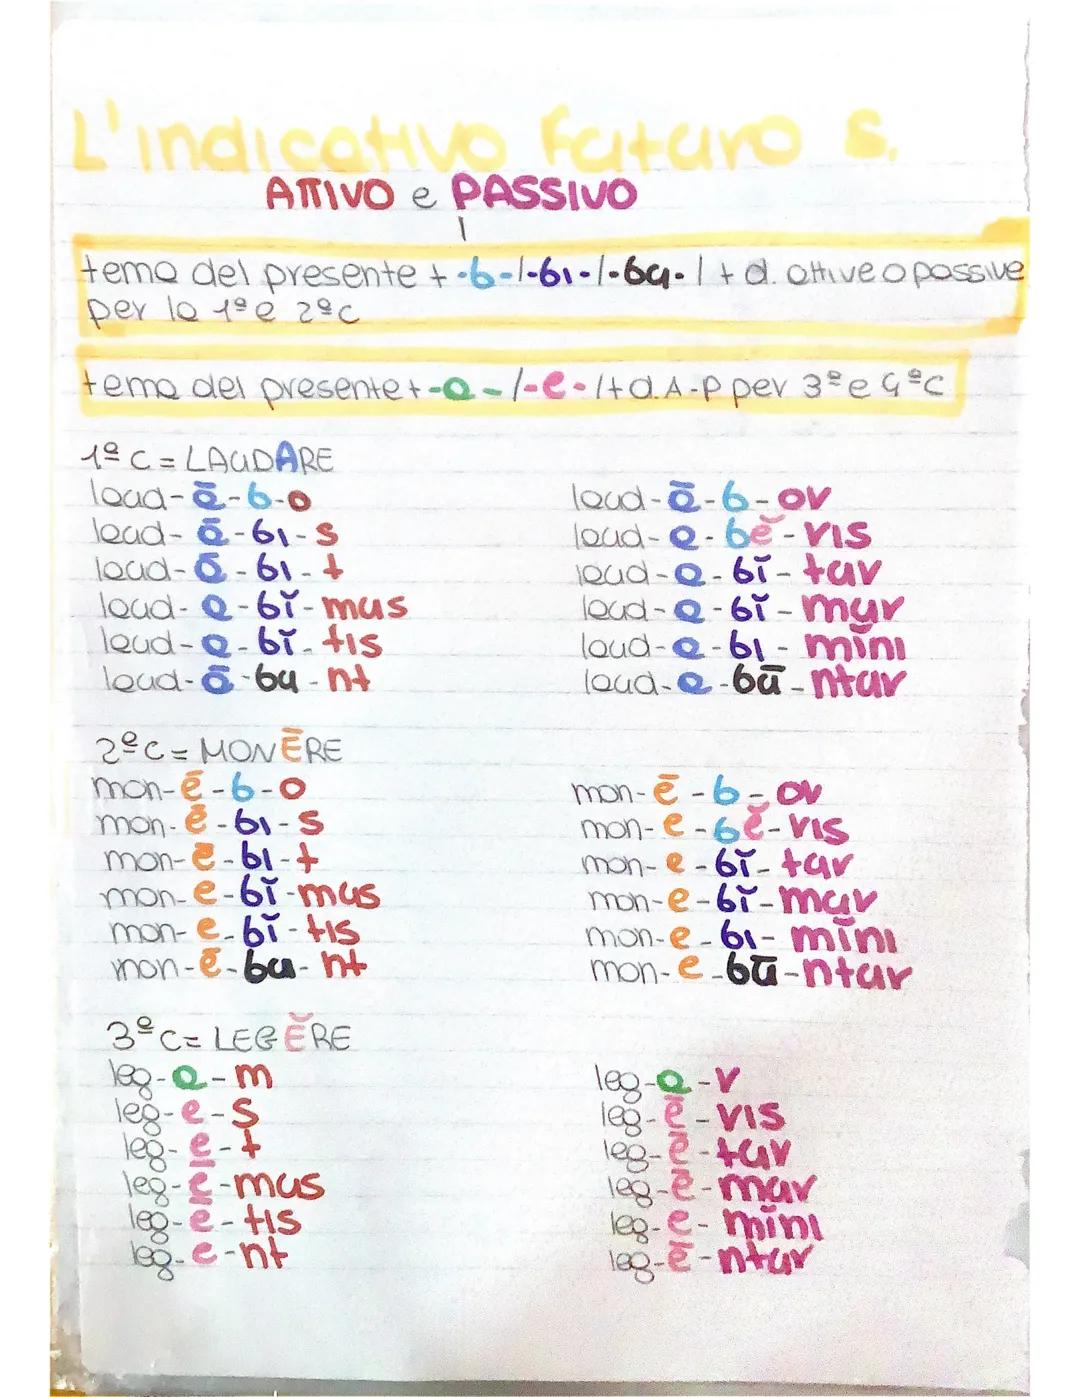 L'indicativo futuro s.
ATTIVO e PASSIVO
tema del presente + -b-/-bi-/-bu-/ + d. attive o passive
per la 1ª e 2ª C
tema del presente + -a-/-e-/+ d. A-P per 3ª e 4ª C
1ª C = LAUDARE
laud-ā-b-o
laud-ā-bi-s
laud-ā-bi-t
laud-a-bĭ-mus
laud-a-bĭ-tis
laud-ā-bu-nt
laud-ā-b-or
laud-a-bĕ-ris
laud-a-bĭ-tur
laud-a-bĭ-mur
laud-a-bi-mĭni
laud-a-bū-ntur
2ª C = MONĒRE
mon-ē-b-o
mon-ē-bi-s
mon-ē-bi-t
mon-e-bĭ-mus
mon-e-bĭ-tis
mon-ē-bu-nt
mon-ē-b-or
mon-e-bĕ-ris
mon-e-bĭ-tur
mon-e-bĭ-mur
mon-e-bi-mĭni
mon-e-bū-ntur
3ª C = LEGĔRE
leg-a-m
leg-e-s
leg-e-t
leg-ē-mus
leg-ē-tis
leg-e-nt
leg-a-r
leg-ē-ris
leg-ē-tur
leg-ē-mur
leg-e-mĭni
leg-ē-ntur